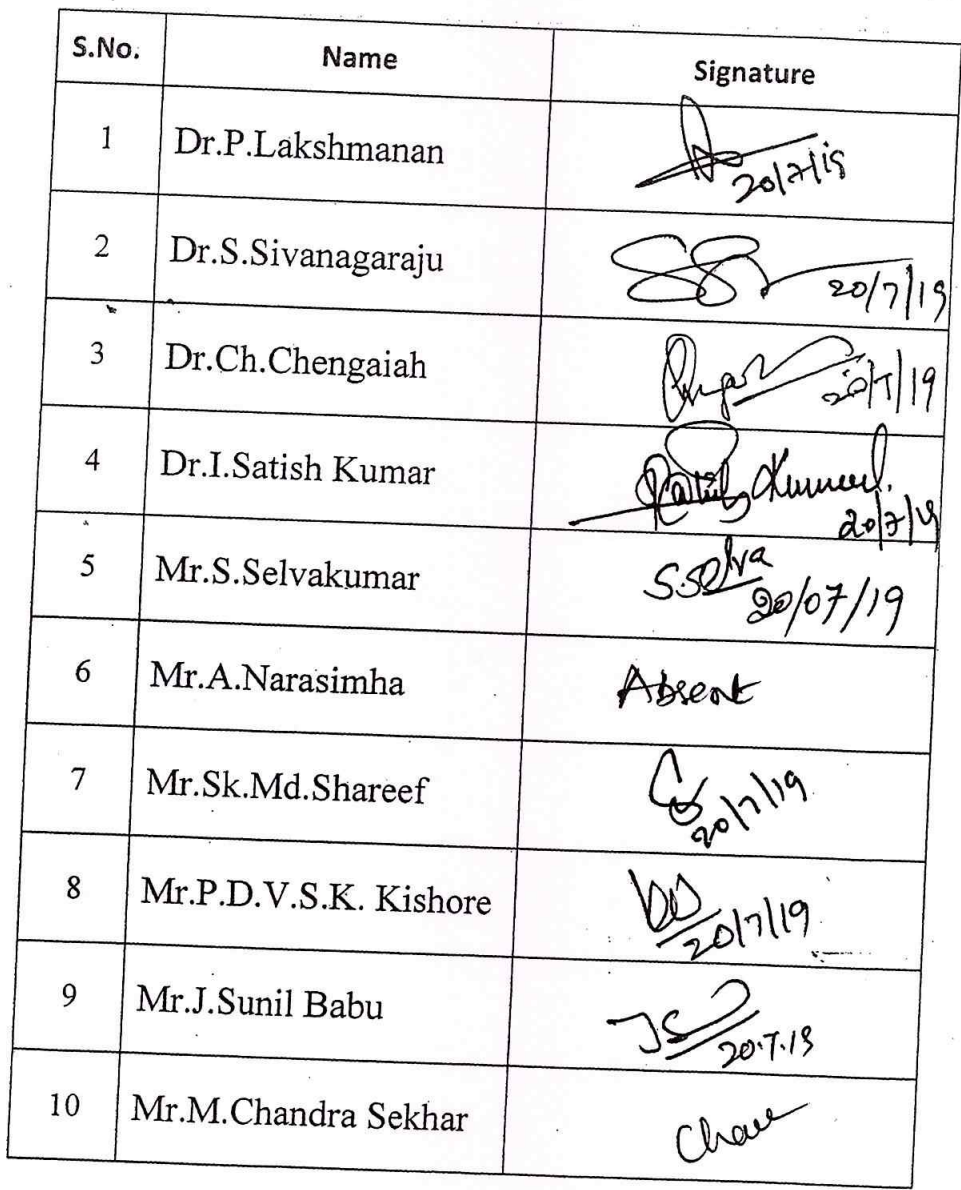 S.No. Name Signature
1 Dr.P.Lakshmanan 20/7/19
2 Dr.S.Sivanagaraju 20/7/19
3 Dr.Ch.Chengaiah 20/7/19
4 Dr.I.Satish Kumar Kumar.
20/7/19
5 Mr.S.Selvakumar S.Selva
20/07/19
6 Mr.A.Narasimha Absent
7 Mr.Sk.Md.Shareef 20/7/19
8 Mr.P.D.V.S.K. Kishore 20/7/19
9 Mr.J.Sunil Babu JS
20.7.19
10 Mr.M.Chandra Sekhar